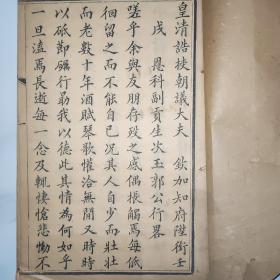 皇清誥授朝議大夫　欽加知府陞銜壬
戌　恩科副貢生次玉郭公行畧
嗟乎余與友朋存歿之感偶振觸焉每低
徊留之而不能自已況其人自少而壯壯
而老數十年酒賦琴歌懽洽無間又時時
以砥節礪行勗我以德此其情為何如乎
一旦溘焉長逝每一念及輒悽愴悲慟不